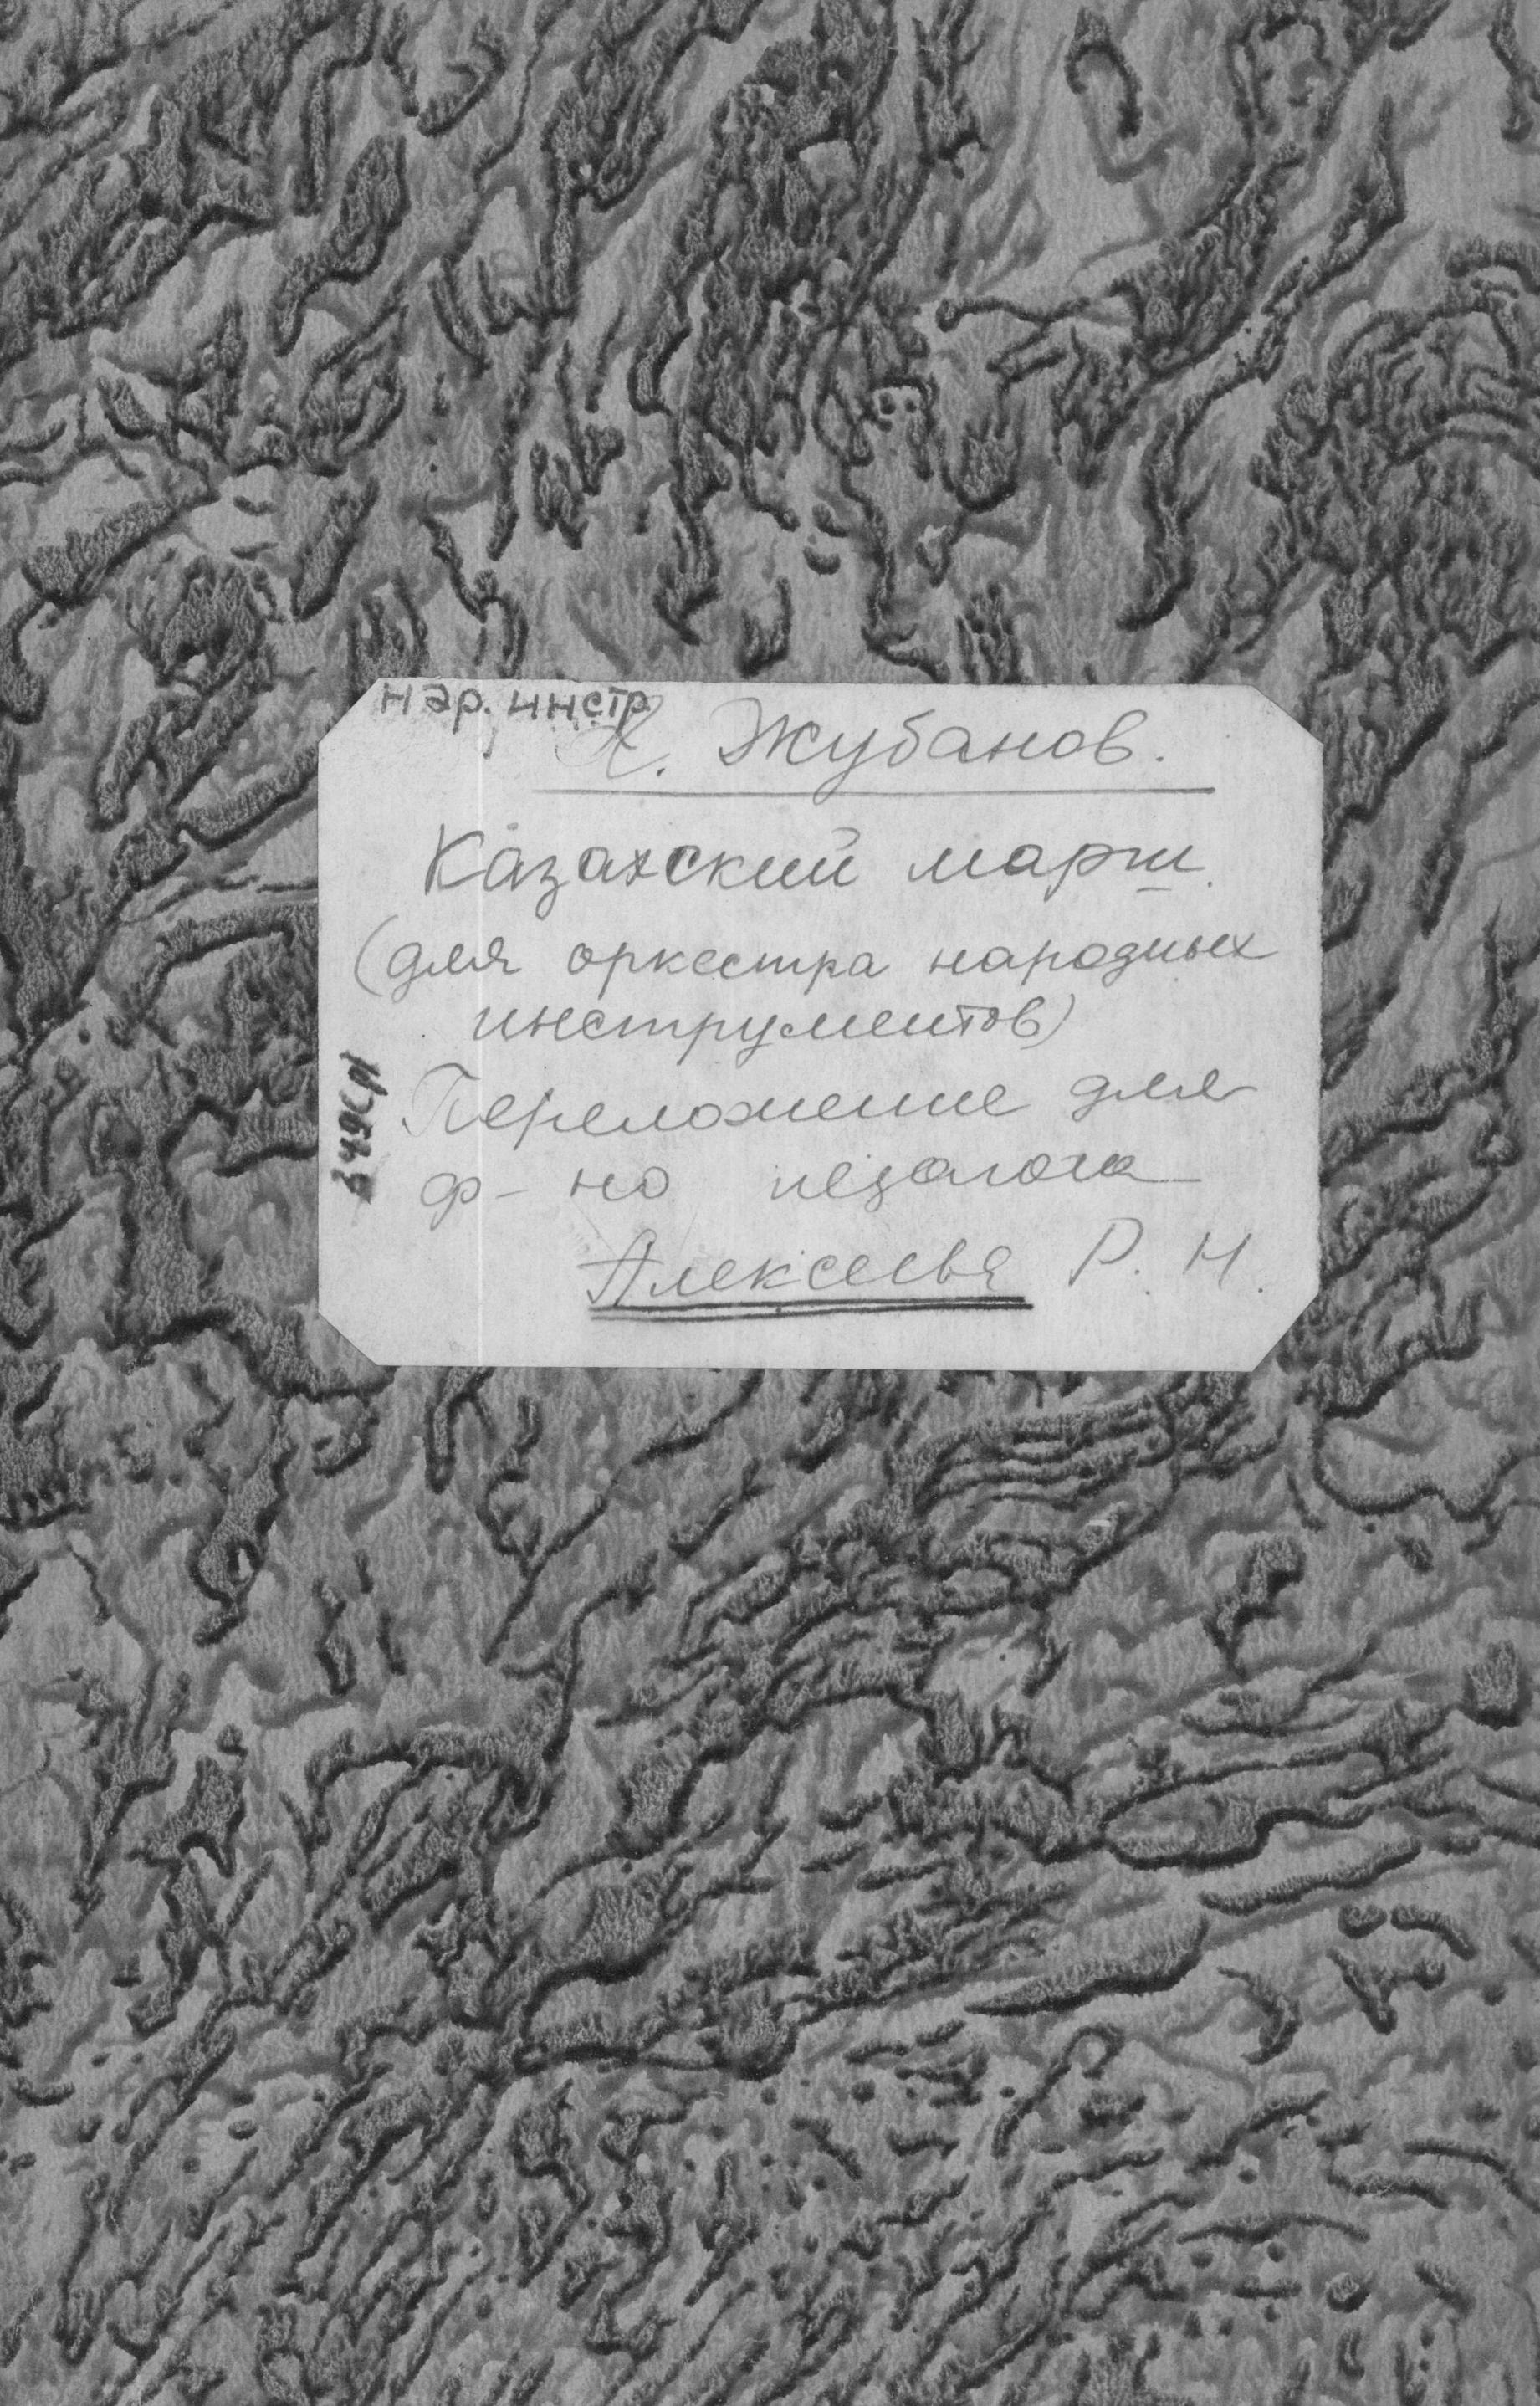 нар. инстр.
Жубанов.
Казахский марш.
(для оркестра народных
инструментов)
Переложение для
ф-но педагога
Алексеева Р. Н.